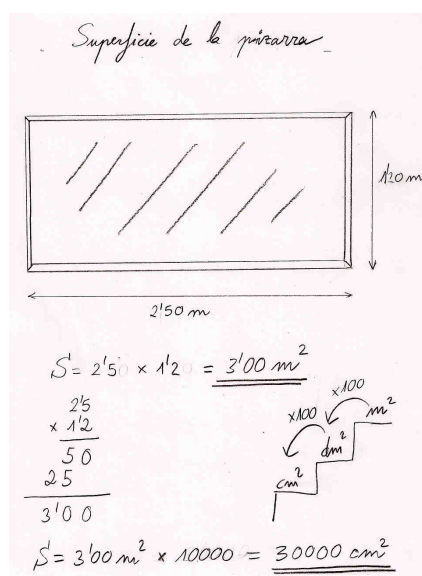 Superficie de la pizarra
1'20 m
2'50 m
S = 2'50 × 1'20 = 3'00 m²
2'5
× 1'2
50
25
3'00
×100
×100
m²
dm²
cm²
S = 3'00 m² × 10000 = 30000 cm²